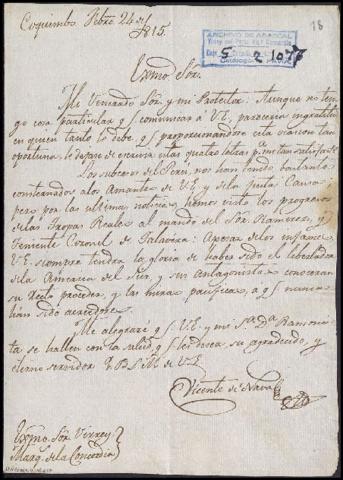 Coquimbo Febre 24 de 1815.
ARCHIVO DE ABASCAL
78
Exmo Sor.
Mi Venerado Sor. y mi Protector: Aunque no ten
go cosa particular q. comunicar a VE, pareceria ingratitud
en quien tanto le debe, q. proporcionandose esta ocasion tan
oportuna, le dejase de escribir estas quatro letras
Los sucesos del Perú, nos han tenido bastante
consternados a los Amantes de VE y de la justa Causa
pero por las ultimas noticias hemos visto los progresos
de las Tropas Reales al mando del Sor. Ramirez, y
Teniente Coronel de Talavera: Apesar de los infames
VE. siempre tendra la gloria de haber sido el libertador
de la America del Sur, y sus antagonistas conoceran
su recto proceder, y las miras pacificas, a q. nunca
han sido acreedores.
Me alegraré q. VE. y mi Sa. Da. Ramoni-
ta se hallen con la salud q. les desea su agradecido, y
eterno servidor Q.B.S.M. de VE
Vicente de Nava
Exmo. Sor. Virrey
Marq. de la Concordia